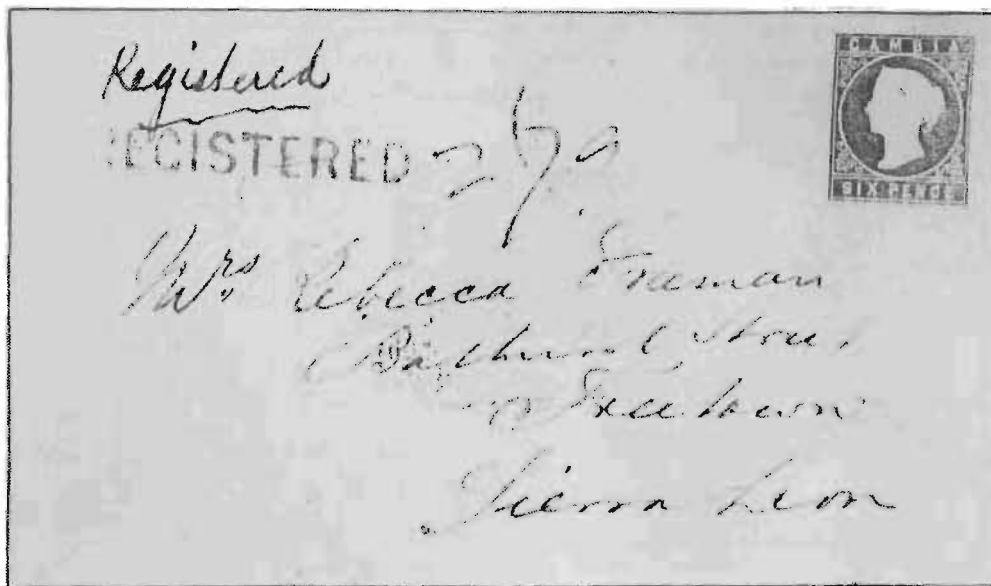 Registered
GAMBIA
REGISTERED
SIX PENCE
Mrs Rebecca Freeman
Bathurst Street
Freetown
Sierra Leon